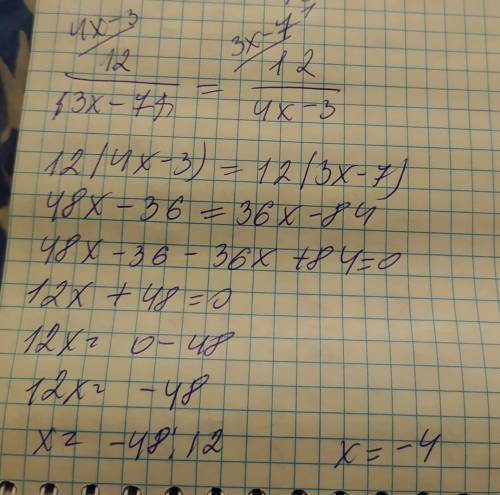 4x-3 3x-7
12 = 12
(3x-7) 4x-3
12(4x-3) = 12(3x-7)
48x-36 = 36x-84
48x-36-36x+84=0
12x+48=0
12x= 0-48
12x= -48
x= -48:12 x=-4